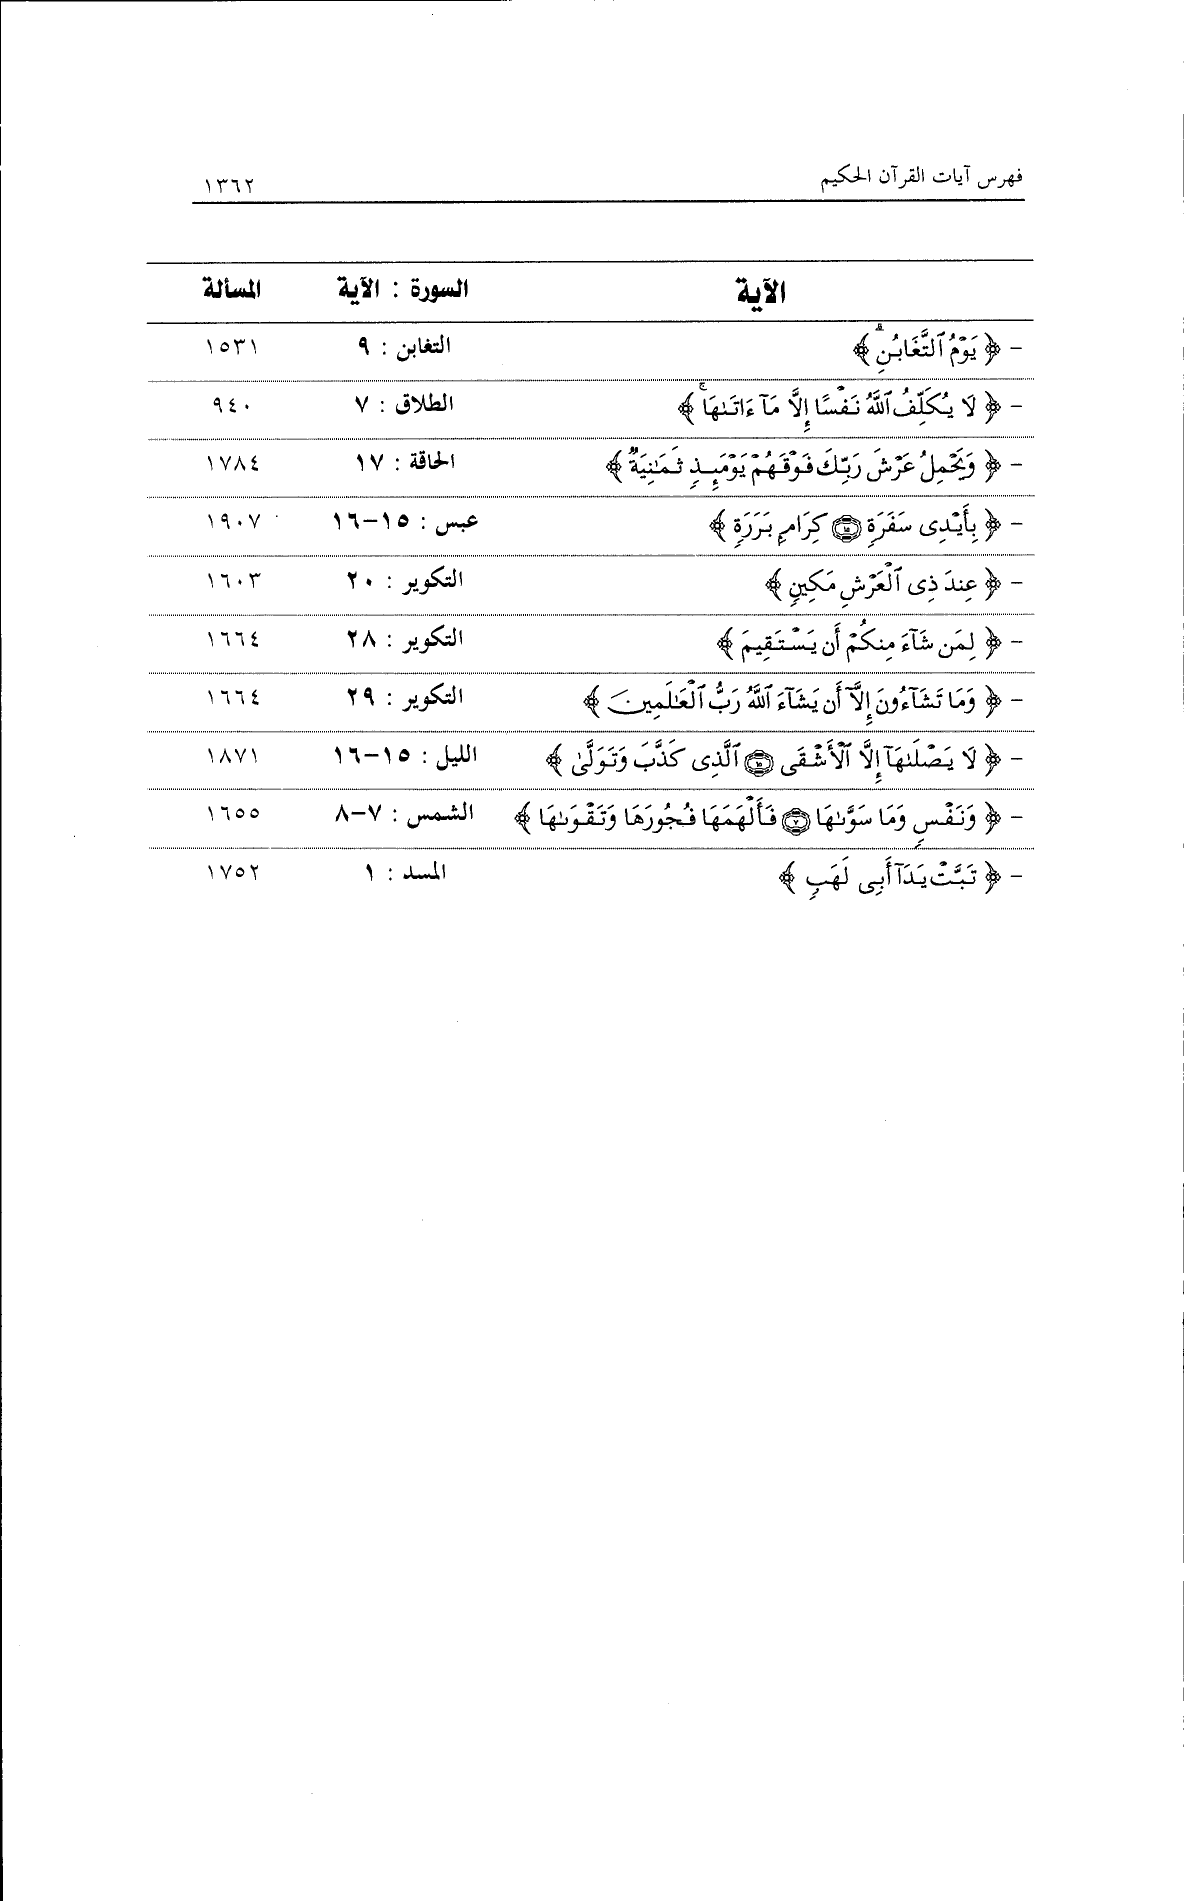 فهرس آيات القرآن الحكيم ١٣٦٢
الآية السورة : الآية المسألة
- ﴿ يَوْمُ ٱلتَّغَابُنِۗ ﴾ التغابن : ٩ ١٥٣١
- ﴿ لَا يُكَلِّفُ ٱللَّهُ نَفْسًا إِلَّا مَآ ءَاتَىٰهَاۚ ﴾ الطلاق : ٧ ٩٤٠
- ﴿ وَيَحْمِلُ عَرْشَ رَبِّكَ فَوْقَهُمْ يَوْمَئِذٍ ثَمَـٰنِيَةٌ ﴾ الحاقة : ١٧ ١٧٨٤
- ﴿ بِأَيْدِى سَفَرَةٍ ١٥ كِرَامٍ بَرَرَةٍ ﴾ عبس : ١٥-١٦ ١٩٠٧
- ﴿ عِندَ ذِى ٱلْعَرْشِ مَكِينٍ ﴾ التكوير : ٢٠ ١٦٠٣
- ﴿ لِمَن شَآءَ مِنكُمْ أَن يَسْتَقِيمَ ﴾ التكوير : ٢٨ ١٦٦٤
- ﴿ وَمَا تَشَآءُونَ إِلَّآ أَن يَشَآءَ ٱللَّهُ رَبُّ ٱلْعَـٰلَمِينَ ﴾ التكوير : ٢٩ ١٦٦٤
- ﴿ لَا يَصْلَىٰهَآ إِلَّا ٱلْأَشْقَى ١٥ ٱلَّذِى كَذَّبَ وَتَوَلَّىٰ ﴾ الليل : ١٥-١٦ ١٨٧١
- ﴿ وَنَفْسٍ وَمَا سَوَّىٰهَا ٧ فَأَلْهَمَهَا فُجُورَهَا وَتَقْوَىٰهَا ﴾ الشمس : ٧-٨ ١٦٥٥
- ﴿ تَبَّتْ يَدَآ أَبِى لَهَبٍ ﴾ المسد : ١ ١٧٥٢